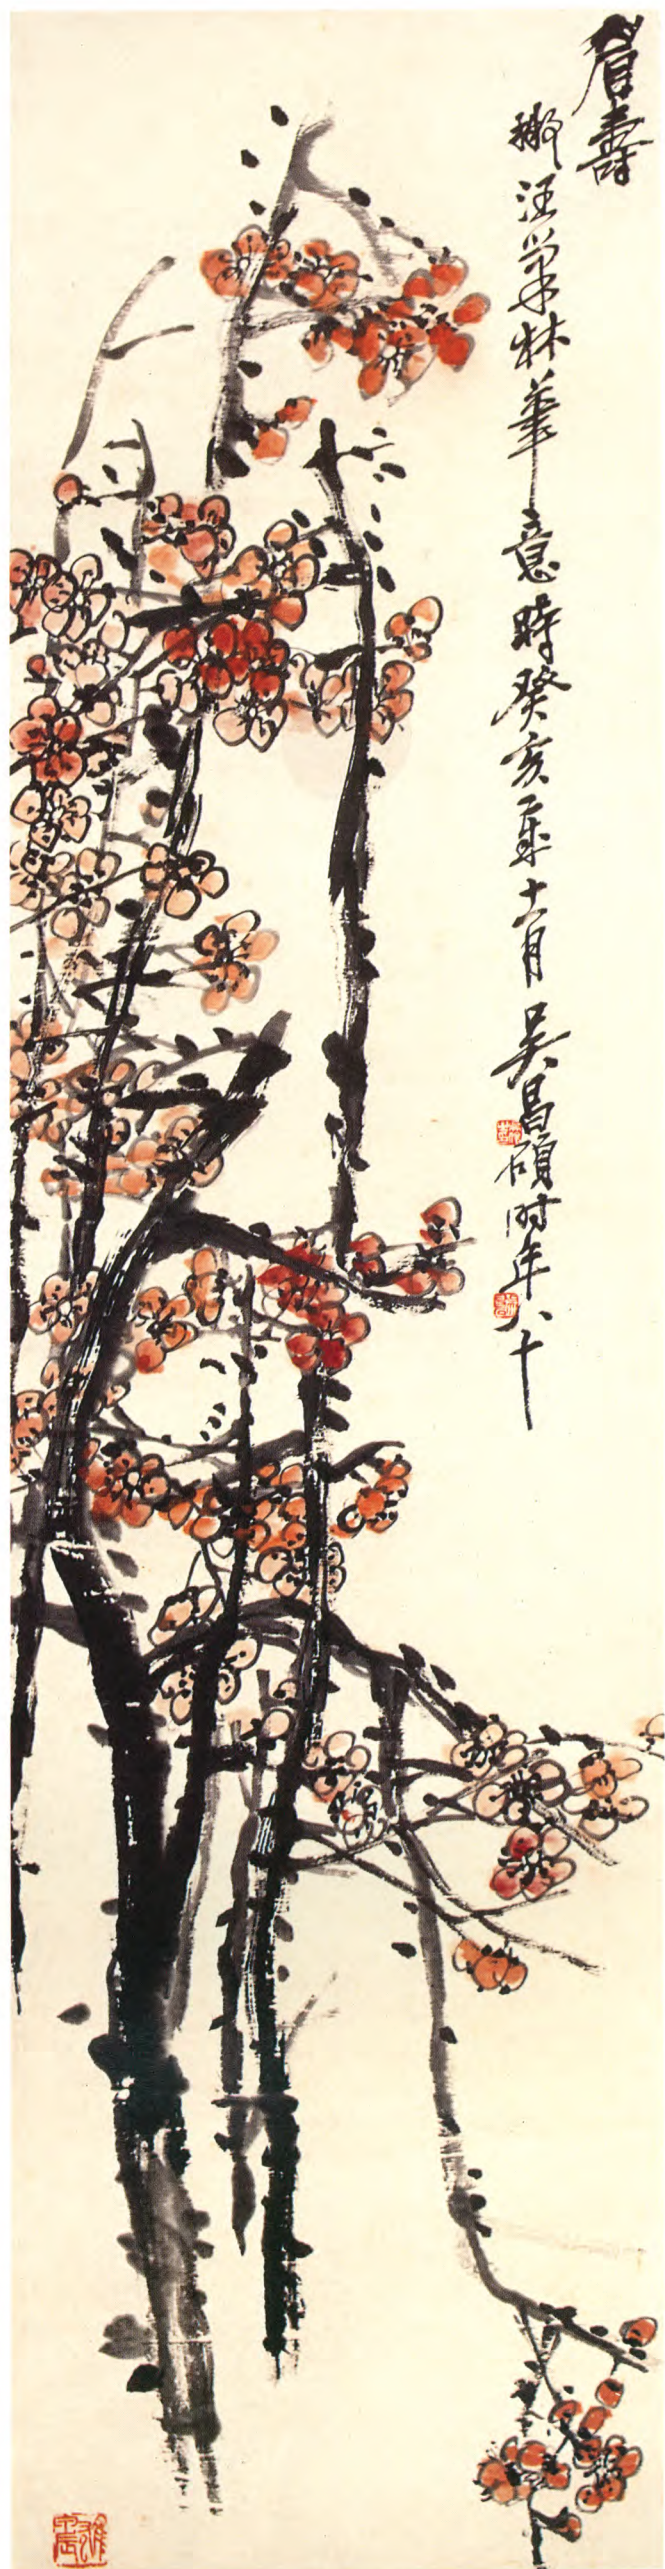 眉壽
擬汪巢林筆意時癸亥年十一月吳昌碩時年八十